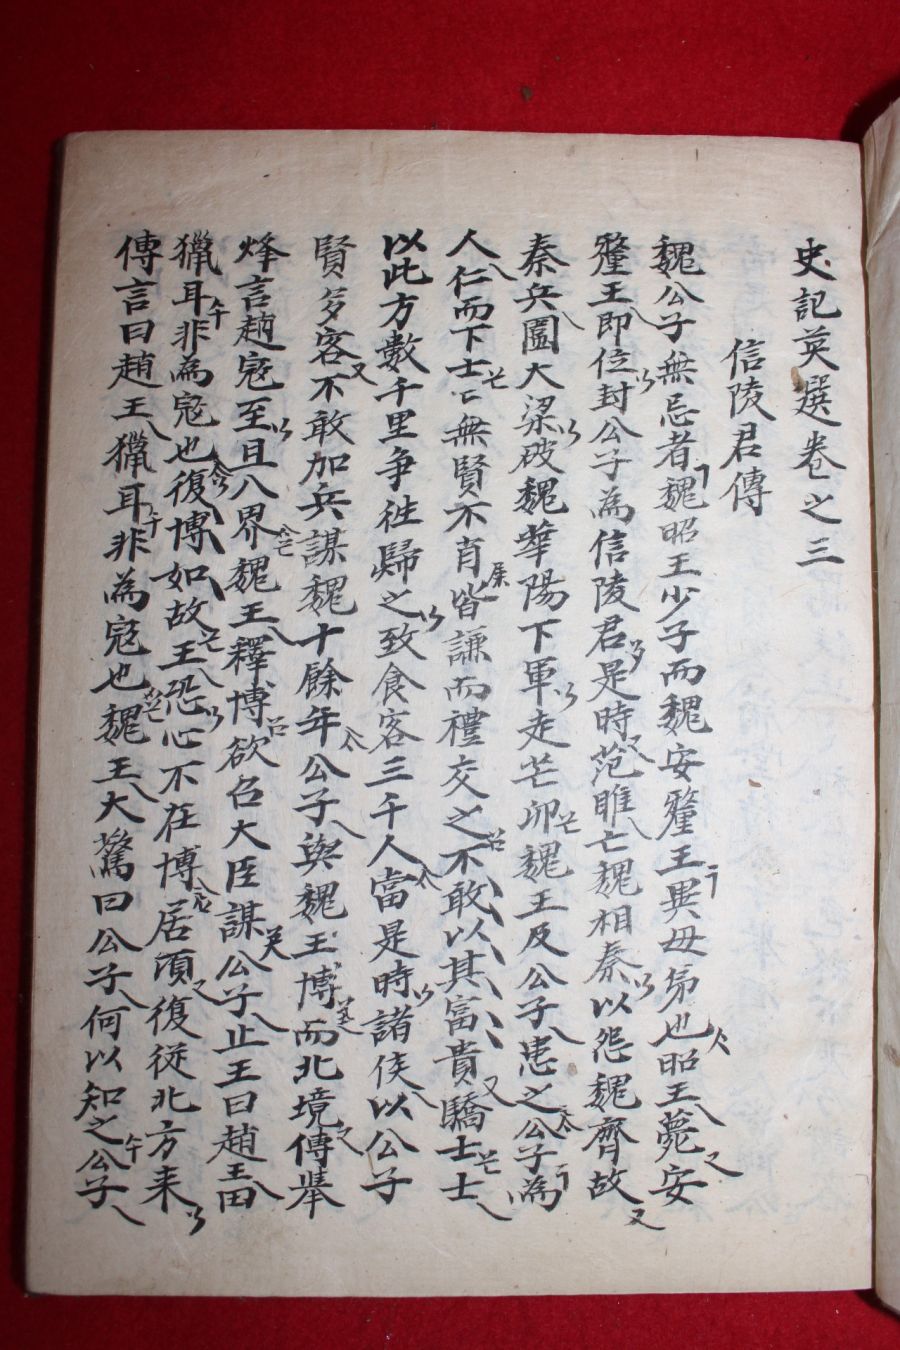 史記英選卷之三
信陵君傳
魏公子無忌者魏昭王少子而魏安釐王異母弟也昭王薨安
釐王即位封公子為信陵君是時范睢亡魏相秦以怨魏齊故
秦兵圍大梁破魏華陽下軍走芒卯魏王及公子患之公子為
人仁而下士〻無賢不肖皆謙而禮交之不敢以其富貴驕士士
以此方數千里争徃歸之致食客三千人當是時諸侯以公子
賢多客不敢加兵謀魏十餘年公子與魏王博而北境傳舉
烽言趙寇至且入界魏王釋博欲召大臣謀公子止王曰趙王田
獵耳非為寇也復博如故王恐心不在博居頃復從北方来
傳言曰趙王獵耳非為寇也魏王大驚曰公子何以知之公子